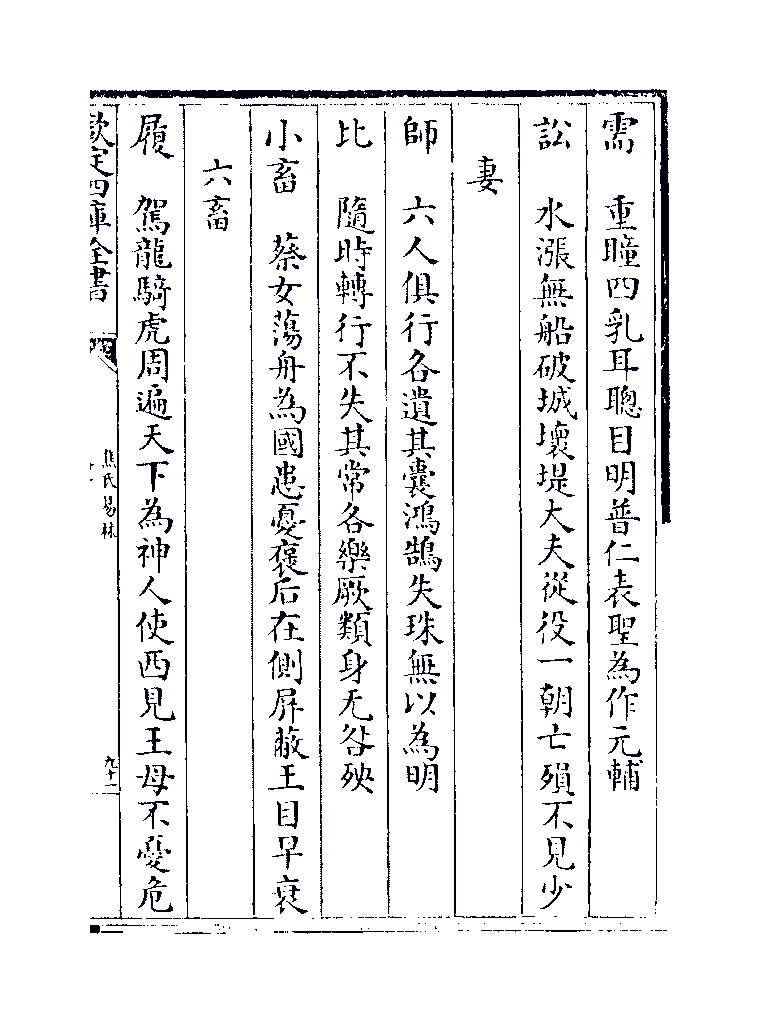 需　重瞳四乳耳聰目明普仁表聖為作元輔
訟　水漲無船破城壞堤大夫從役一朝亡殞不見少
妻
師　六人俱行各遺其囊鴻鵠失珠無以為明
比　隨時轉行不失其常各樂厥類身无咎殃
小畜　蔡女蕩舟為國患憂褒后在側屏蔽王目早衰
六畜
履　駕龍騎虎周遍天下為神人使西見王母不憂危
欽定四庫全書
焦氏易林
九十一